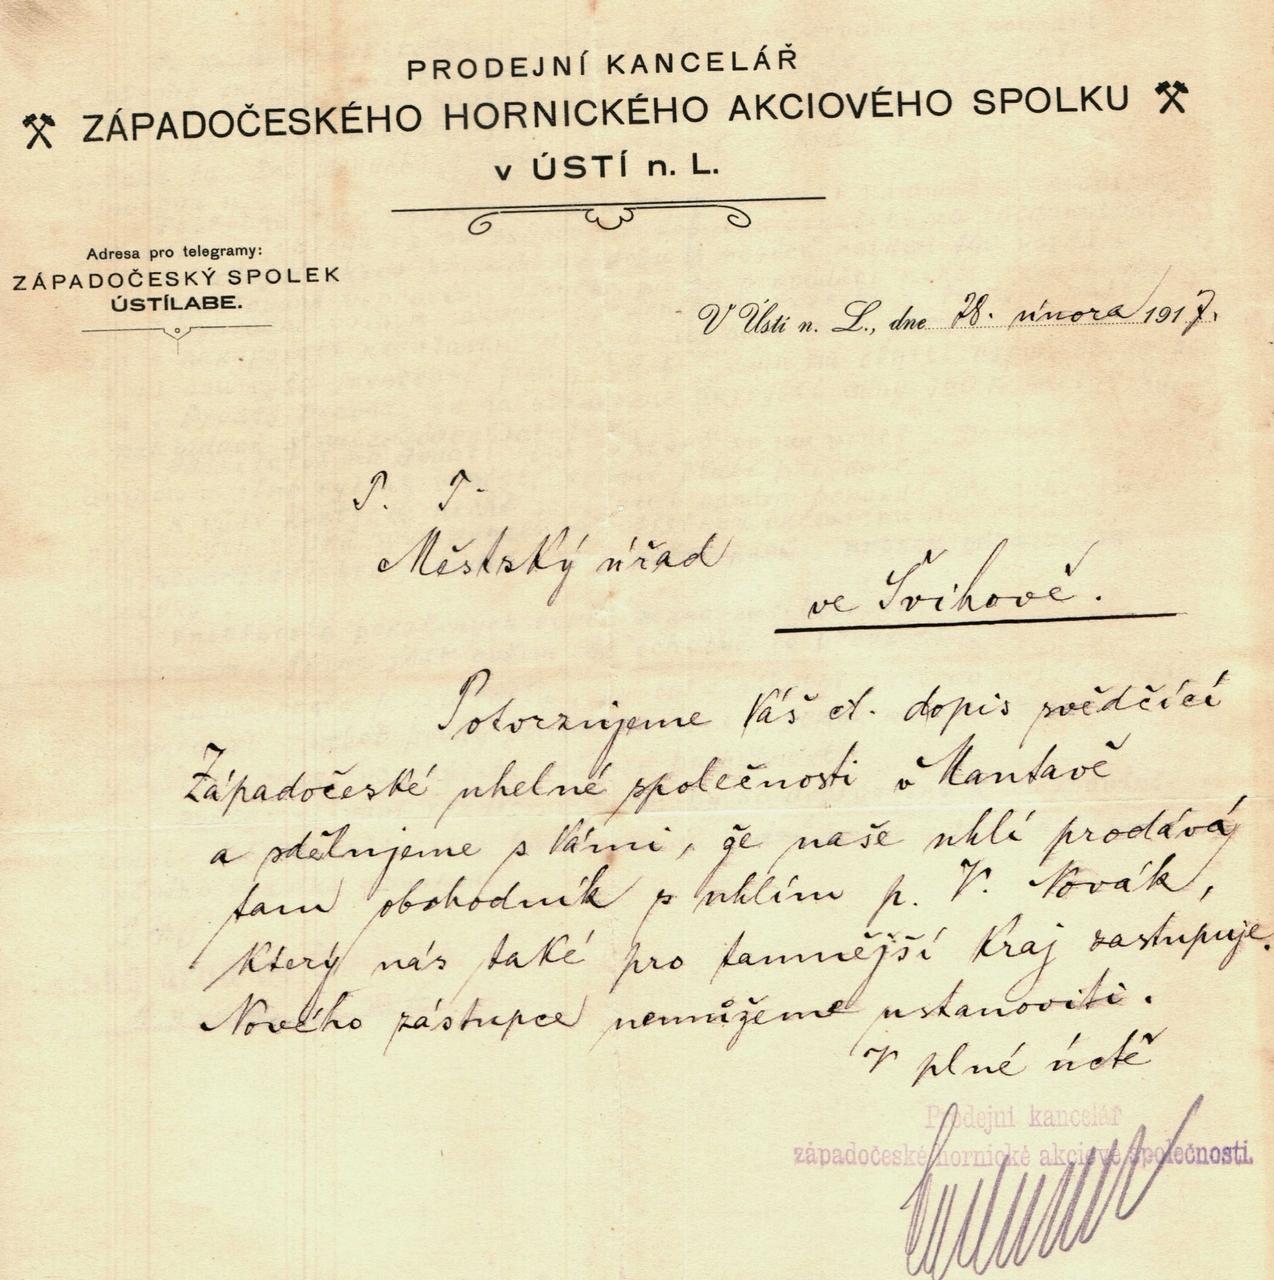 PRODEJNÍ KANCELÁŘ
ZÁPADOČESKÉHO HORNICKÉHO AKCIOVÉHO SPOLKU
v ÚSTÍ n. L.
Adresa pro telegramy:
ZÁPADOČESKÝ SPOLEK
ÚSTÍLABE.
V Ústí n. L., dne 28. února 1917.
P. T.
Městský úřad
ve Švihově.
Potvrzujeme Váš ct. dopis svědčící
Západočeské uhelné společnosti v Mantavě
a sdělujeme s Vámi, že naše uhlí prodává
tam obchodník s uhlím p. V. Novák,
který nás také pro tamnější kraj zastupuje.
Nového zástupce nemůžeme ustanoviti.
V plné úctě
Prodejní kancelář
západočeské hornické akciové společnosti.